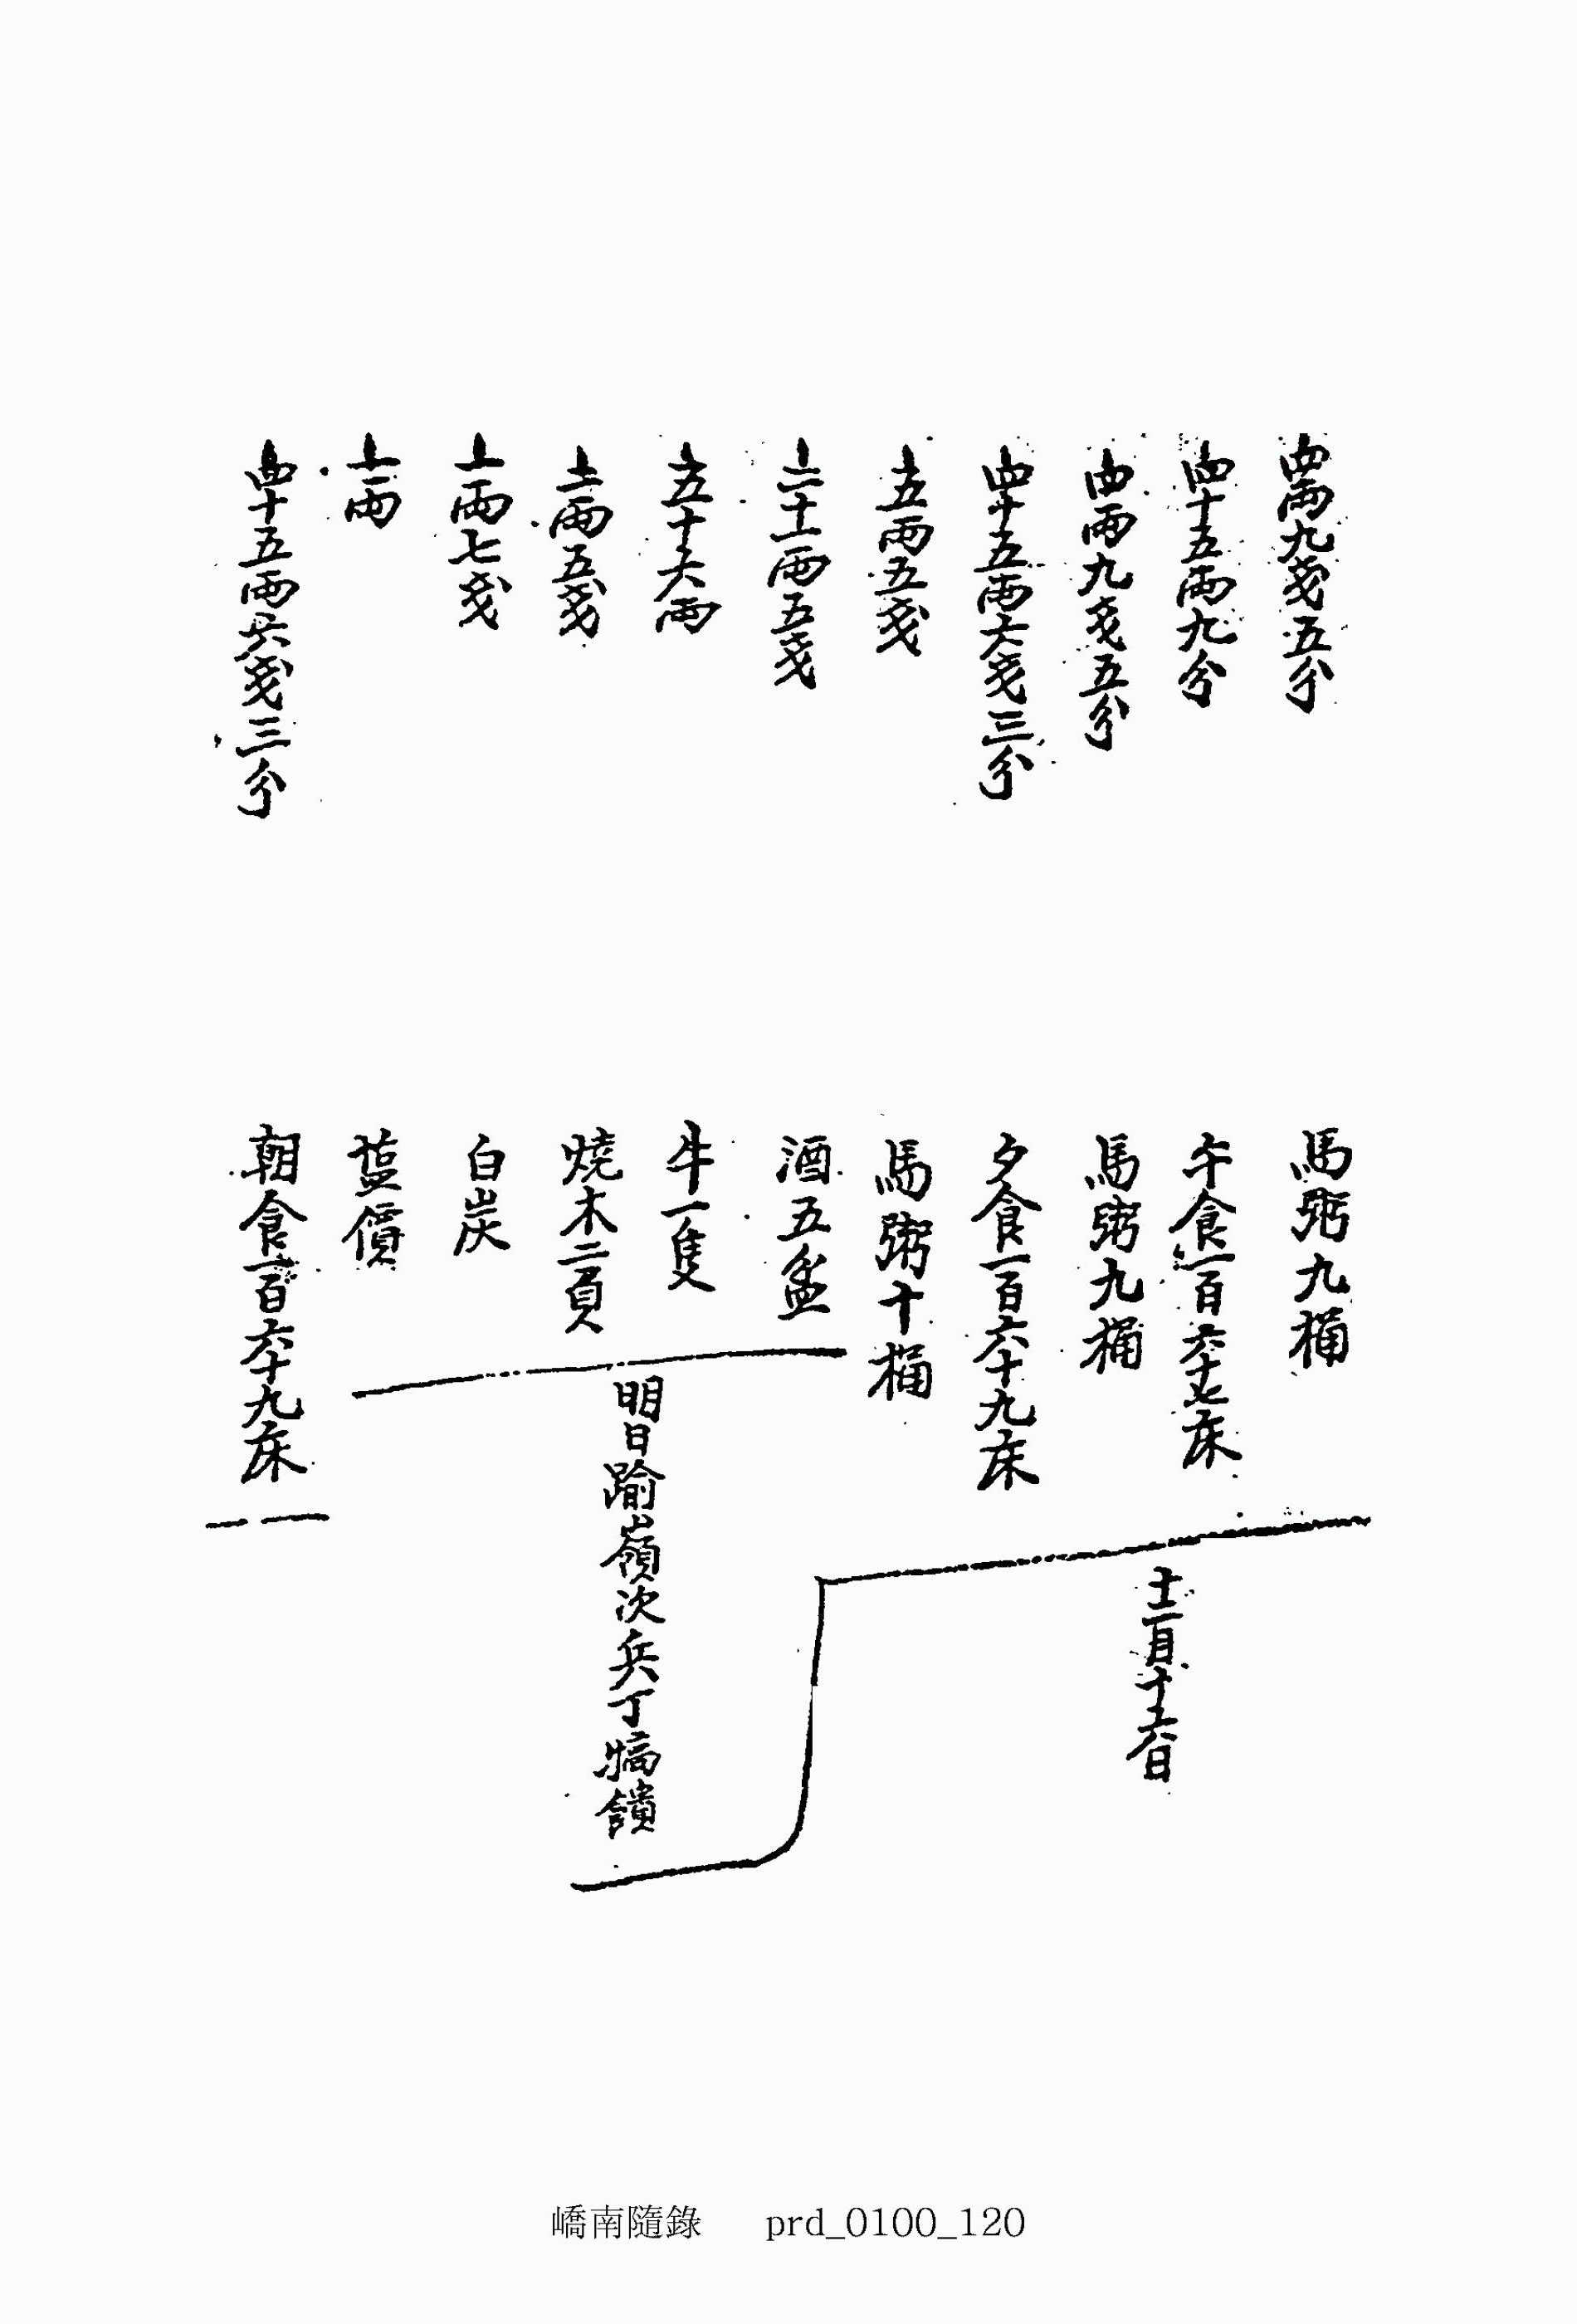 四兩九戔五分
馬粥九桶
四十五兩九分
午食一百六十七床
四兩九戔五分
馬粥九桶
四十五兩六戔三分
夕食一百六十九床
五兩五戔
馬粥十桶
十二月十六日
二十二兩五戔
酒五盆
五十六兩
牛一隻
二兩五戔
燒木二負
一兩七戔
白炭
一兩
藍價
明日踰嶺次兵丁犒饋
四十五兩六戔三分
朝食一百六十九床
嶠南隨錄 prd_0100_120